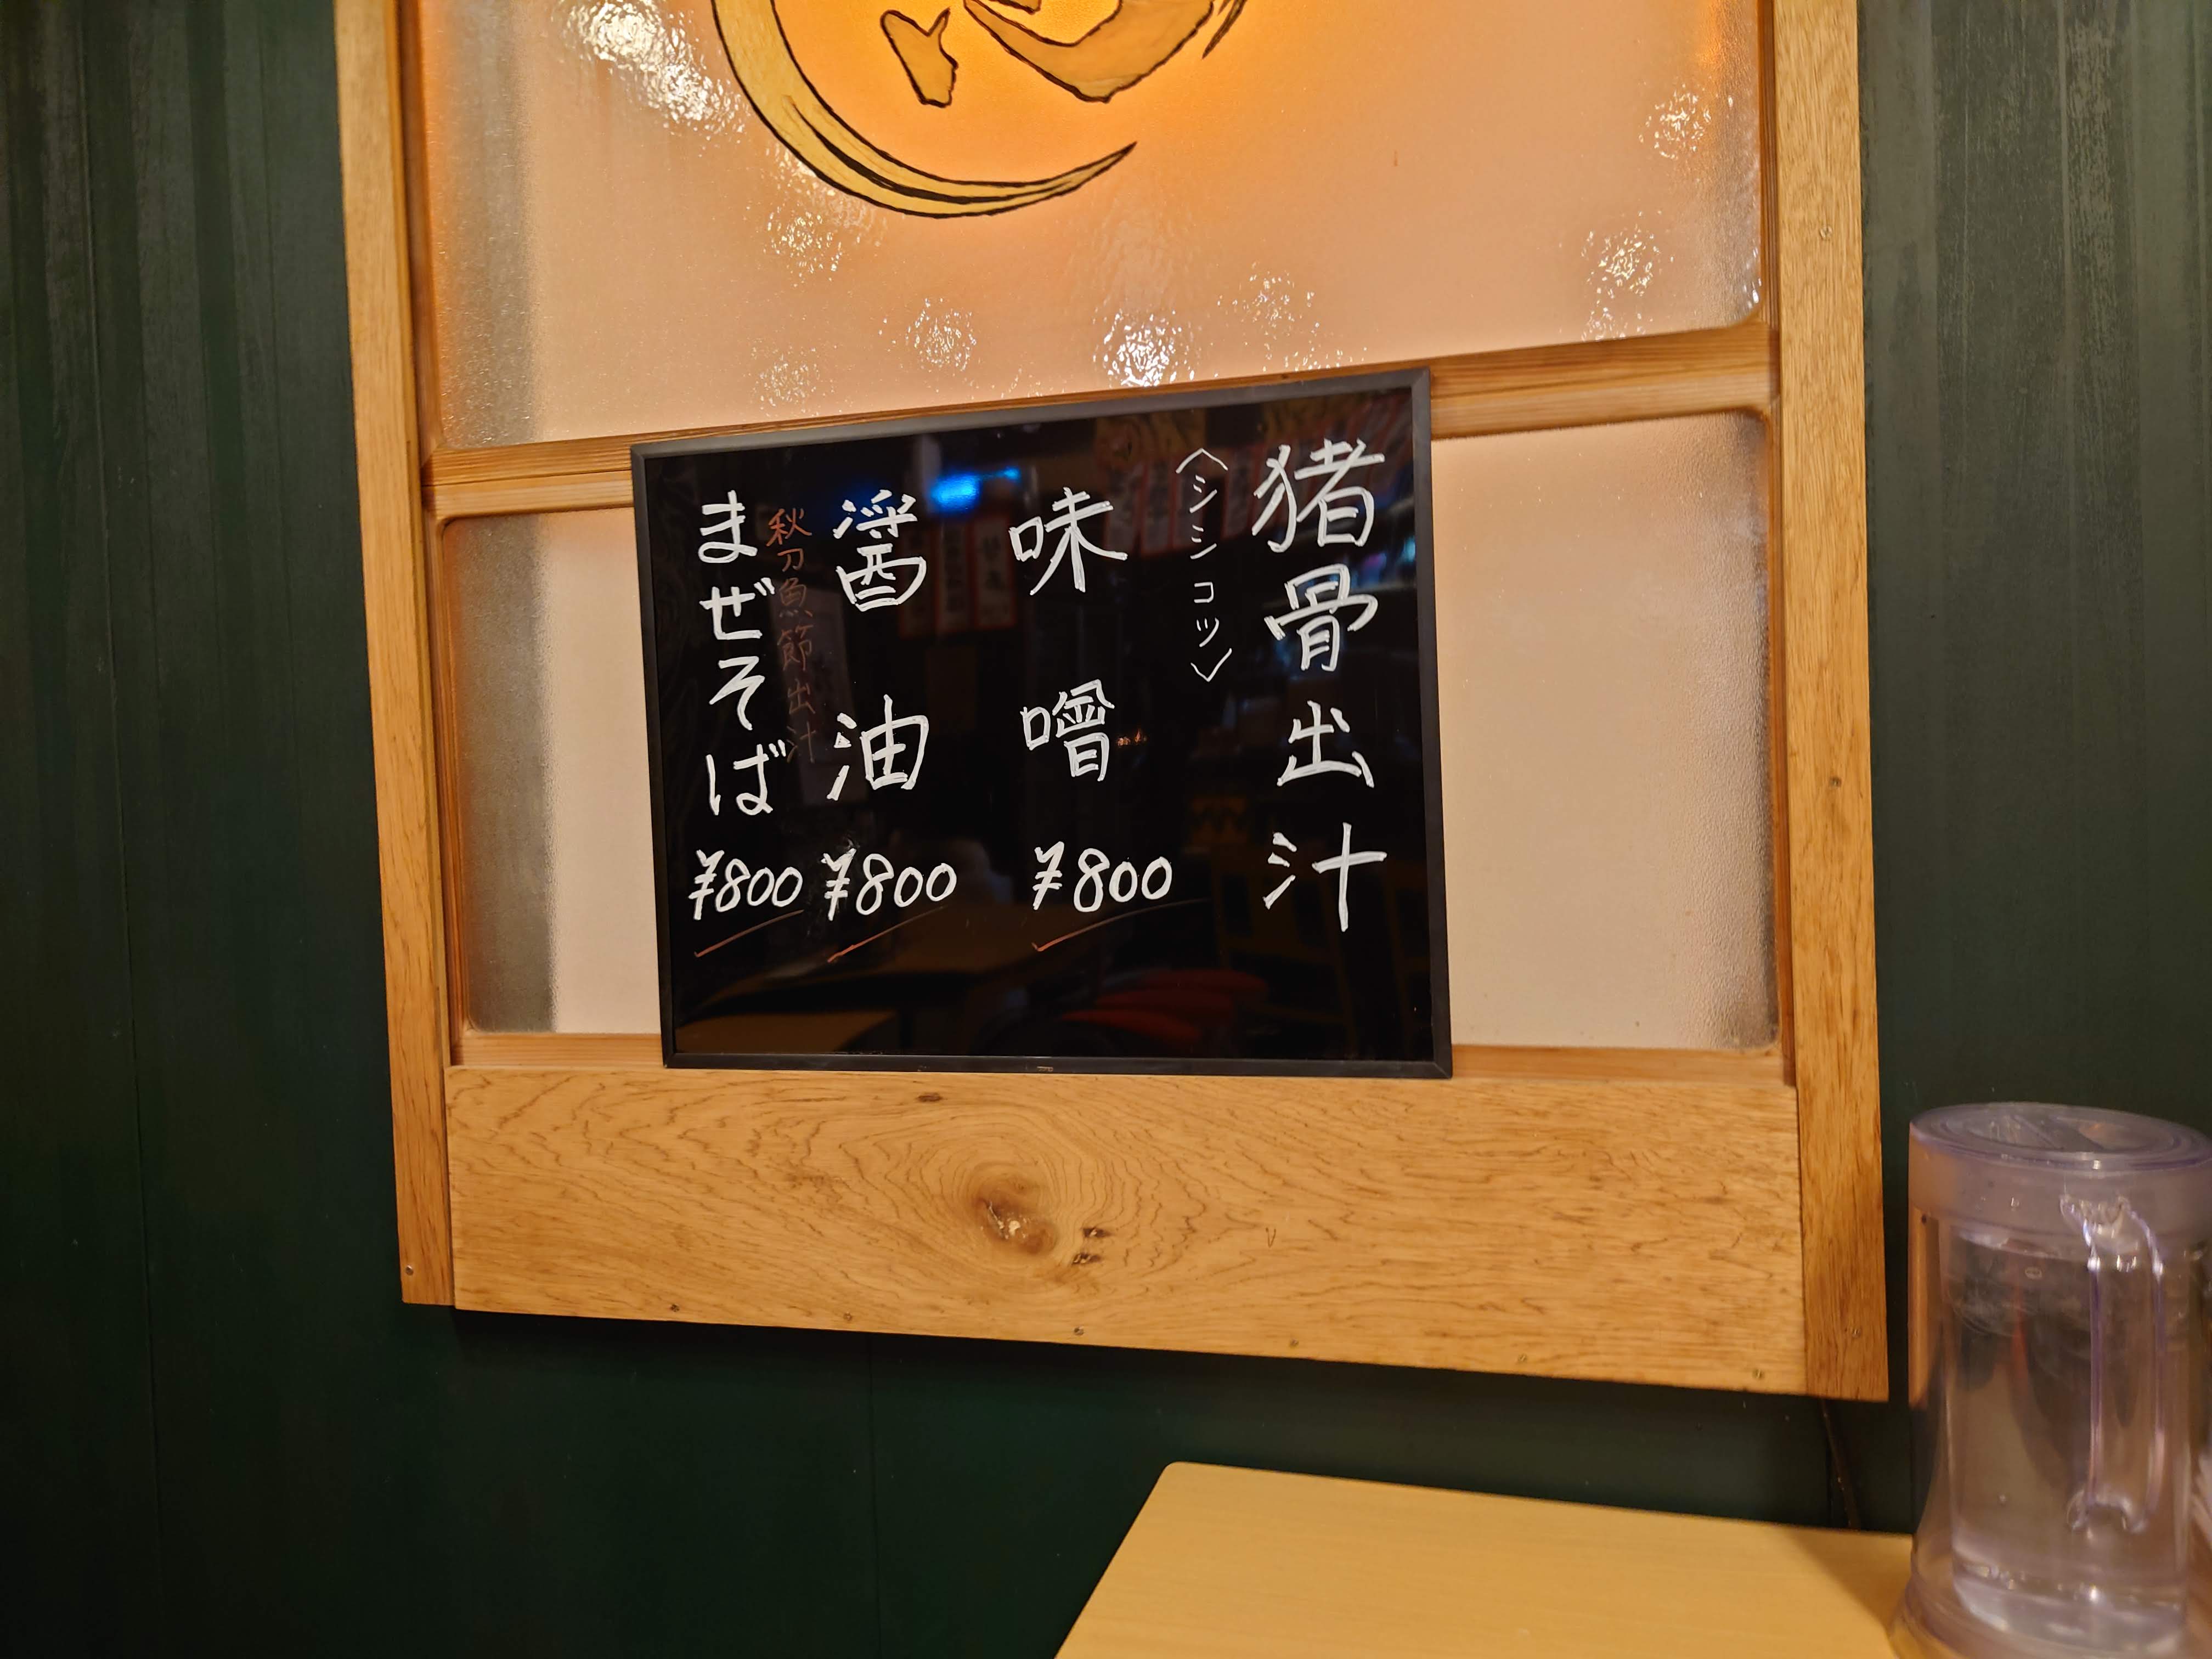 猪骨出汁
〈シシコツ〉
味噌 ¥800
醤油 ¥800
秋刀魚節出汁
まぜそば ¥800